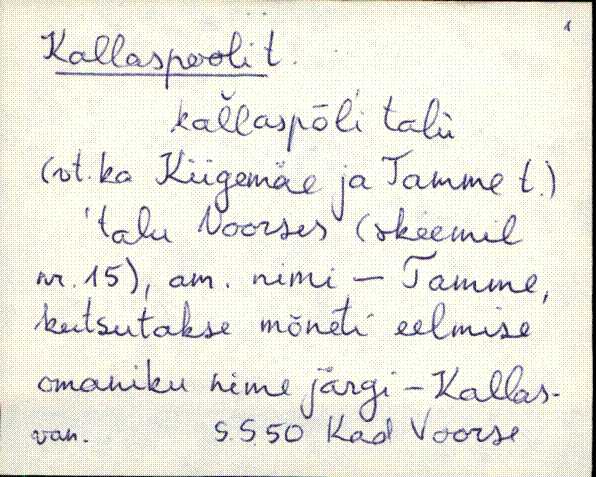 1
Kallaspooli t.
kal̆laspōl'i talu̇
(vt. ka Kiigemäe ja Tamme t.)
'talu Voorses (skeemil
nr. 15), am. nimi – Tamme,
kutsutakse mõneti eelmise
omaniku nime järgi – Kallas-
van. S.S50 Kad Voorse